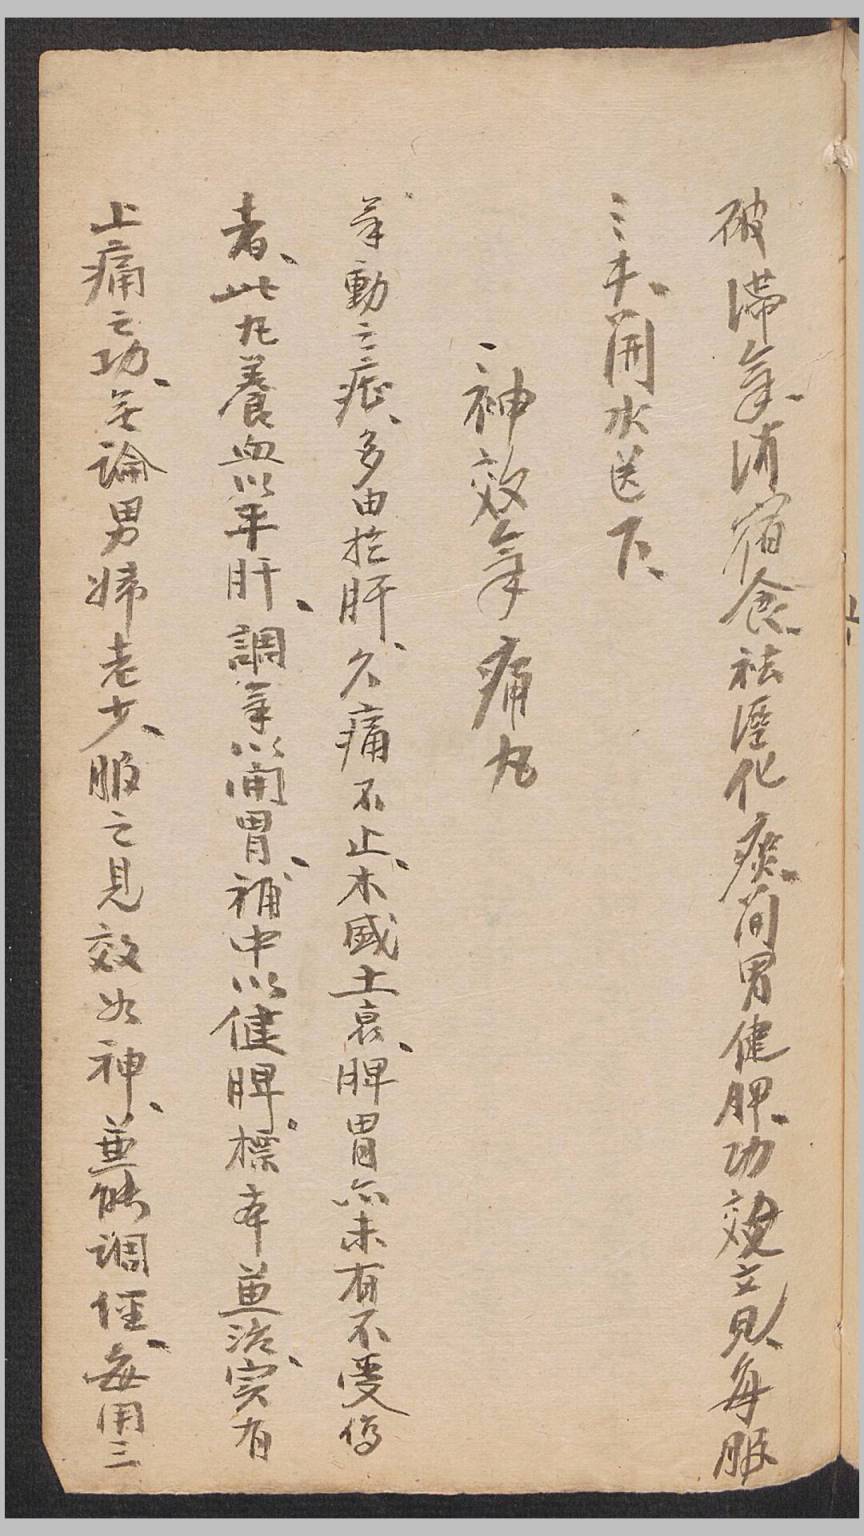 破滯氣、消宿食、祛溼化痰、開胃健脾、功效立見、每服
三十、開水送下、
神效氣痛丸
氣動之症、多由於肝、久痛不止、木盛土衰、脾胃亦未有不受傷
者、此丸養血以平肝、調氣以開胃、補中以健脾、標本並治、實有
止痛之功、無論男婦老少、服之見效如神、並能調經、每用三